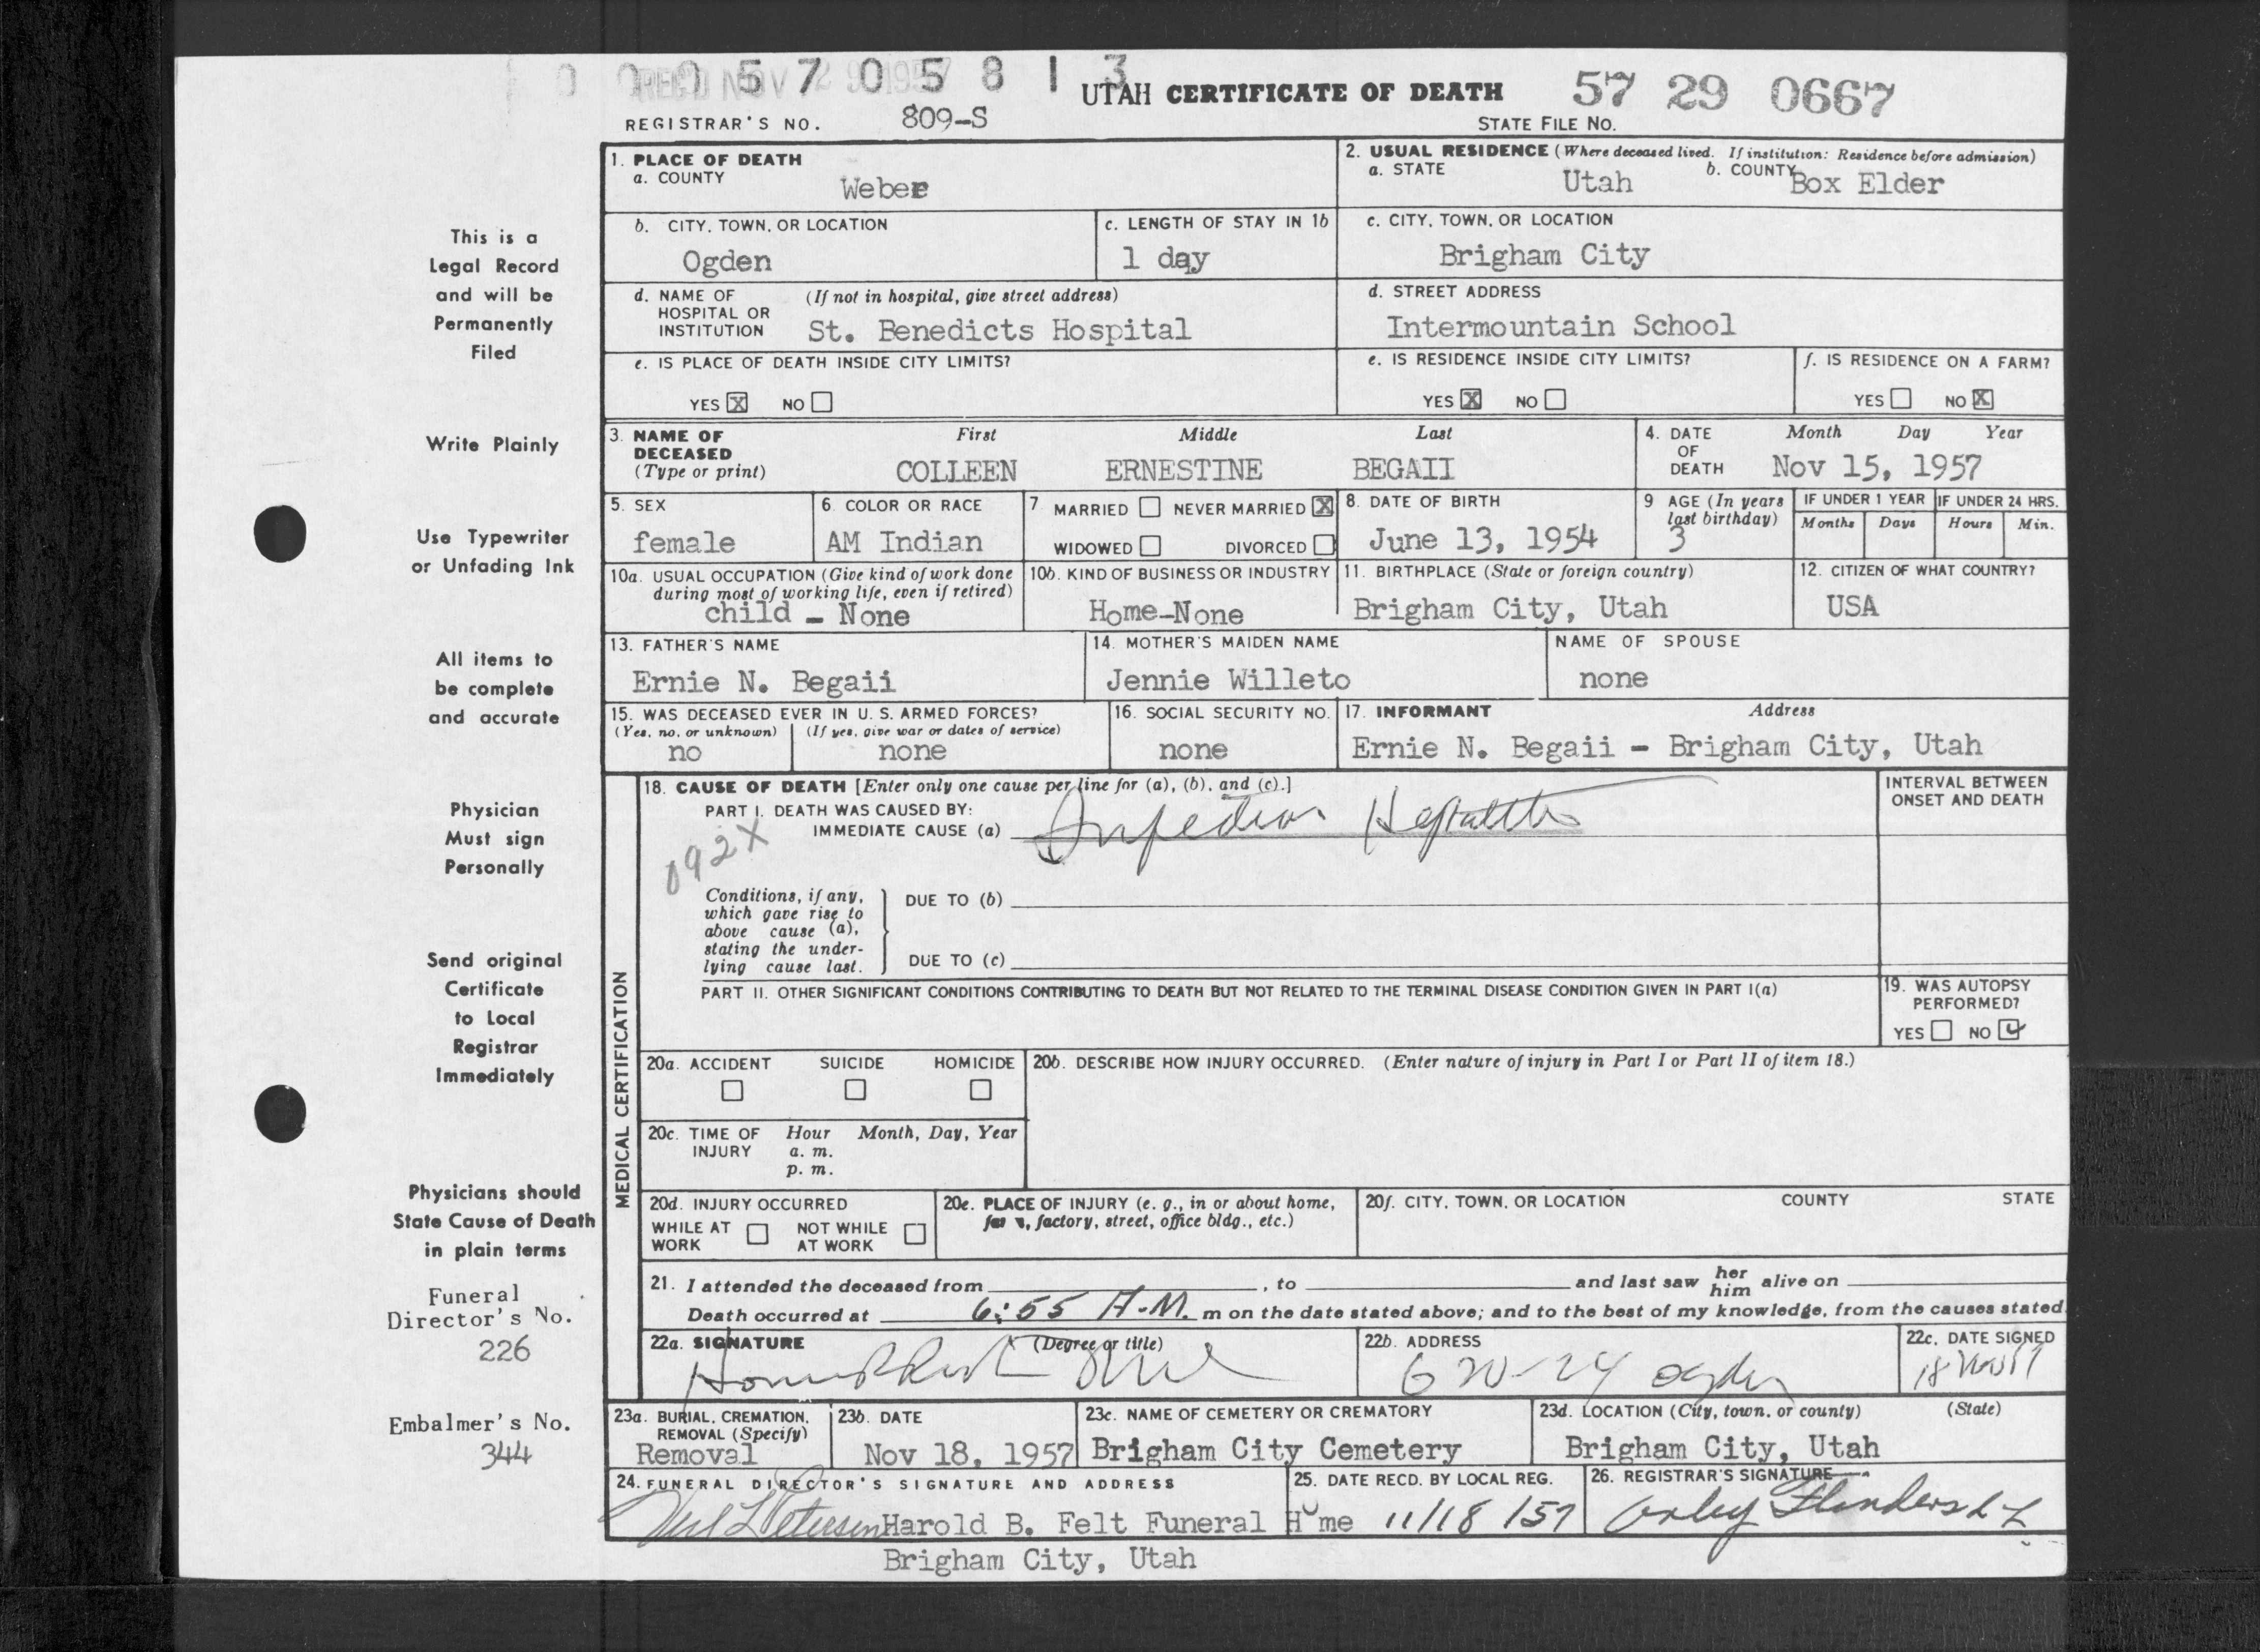 0 0 0 5 7 0 5 8 1 3
REC'D NOV 29 1957
UTAH CERTIFICATE OF DEATH 57 29 0667
REGISTRAR'S NO. 809-S STATE FILE NO.
1. PLACE OF DEATH
a. COUNTY Weber
2. USUAL RESIDENCE (Where deceased lived. If institution: Residence before admission)
a. STATE Utah b. COUNTY Box Elder
b. CITY, TOWN, OR LOCATION Ogden
c. LENGTH OF STAY IN 1b 1 day
c. CITY, TOWN, OR LOCATION Brigham City
d. NAME OF HOSPITAL OR INSTITUTION (If not in hospital, give street address) St. Benedicts Hospital
d. STREET ADDRESS Intermountain School
e. IS PLACE OF DEATH INSIDE CITY LIMITS?
YES X NO
e. IS RESIDENCE INSIDE CITY LIMITS?
YES X NO
f. IS RESIDENCE ON A FARM?
YES NO X
3. NAME OF DECEASED (Type or print) First Middle Last
COLLEEN ERNESTINE BEGAII
4. DATE OF DEATH Month Day Year
Nov 15, 1957
5. SEX female
6. COLOR OR RACE AM Indian
7 MARRIED NEVER MARRIED X
WIDOWED DIVORCED
8. DATE OF BIRTH June 13, 1954
9 AGE (In years last birthday) 3
IF UNDER 1 YEAR IF UNDER 24 HRS.
Months Days Hours Min.
10a. USUAL OCCUPATION (Give kind of work done during most of working life, even if retired)
child - None
10b. KIND OF BUSINESS OR INDUSTRY
Home-None
11. BIRTHPLACE (State or foreign country)
Brigham City, Utah
12. CITIZEN OF WHAT COUNTRY?
USA
13. FATHER'S NAME
Ernie N. Begaii
14. MOTHER'S MAIDEN NAME
Jennie Willeto
NAME OF SPOUSE
none
15. WAS DECEASED EVER IN U. S. ARMED FORCES?
(Yes, no, or unknown) (If yes, give war or dates of service)
no none
16. SOCIAL SECURITY NO.
none
17. INFORMANT Address
Ernie N. Begaii - Brigham City, Utah
MEDICAL CERTIFICATION
18. CAUSE OF DEATH [Enter only one cause per line for (a), (b), and (c).]
PART I. DEATH WAS CAUSED BY:
IMMEDIATE CAUSE (a) Infectious Hepatitis
092X
Conditions, if any, which gave rise to above cause (a), stating the underlying cause last.
DUE TO (b)
DUE TO (c)
INTERVAL BETWEEN ONSET AND DEATH
PART II. OTHER SIGNIFICANT CONDITIONS CONTRIBUTING TO DEATH BUT NOT RELATED TO THE TERMINAL DISEASE CONDITION GIVEN IN PART I(a)
19. WAS AUTOPSY PERFORMED?
YES NO
20a. ACCIDENT SUICIDE HOMICIDE
20b. DESCRIBE HOW INJURY OCCURRED. (Enter nature of injury in Part I or Part II of item 18.)
20c. TIME OF INJURY Hour Month, Day, Year
a. m.
p. m.
20d. INJURY OCCURRED
WHILE AT WORK NOT WHILE AT WORK
20e. PLACE OF INJURY (e. g., in or about home, factory, street, office bldg., etc.)
20f. CITY, TOWN, OR LOCATION COUNTY STATE
21. I attended the deceased from , to and last saw her him alive on
Death occurred at 6:55 A.M. m on the date stated above; and to the best of my knowledge, from the causes stated
22a. SIGNATURE (Degree or title)
22b. ADDRESS Ogden
22c. DATE SIGNED
23a. BURIAL, CREMATION, REMOVAL (Specify)
Removal
23b. DATE
Nov 18, 1957
23c. NAME OF CEMETERY OR CREMATORY
Brigham City Cemetery
23d. LOCATION (City, town, or county) (State)
Brigham City, Utah
24. FUNERAL DIRECTOR'S SIGNATURE AND ADDRESS
Petersen Harold B. Felt Funeral Home
25. DATE RECD. BY LOCAL REG.
11/18/57
26. REGISTRAR'S SIGNATURE
Flanders
Brigham City, Utah
This is a
Legal Record
and will be
Permanently
Filed
Write Plainly
Use Typewriter
or Unfading Ink
All items to
be complete
and accurate
Physician
Must sign
Personally
Send original
Certificate
to Local
Registrar
Immediately
Physicians should
State Cause of Death
in plain terms
Funeral
Director's No.
226
Embalmer's No.
344